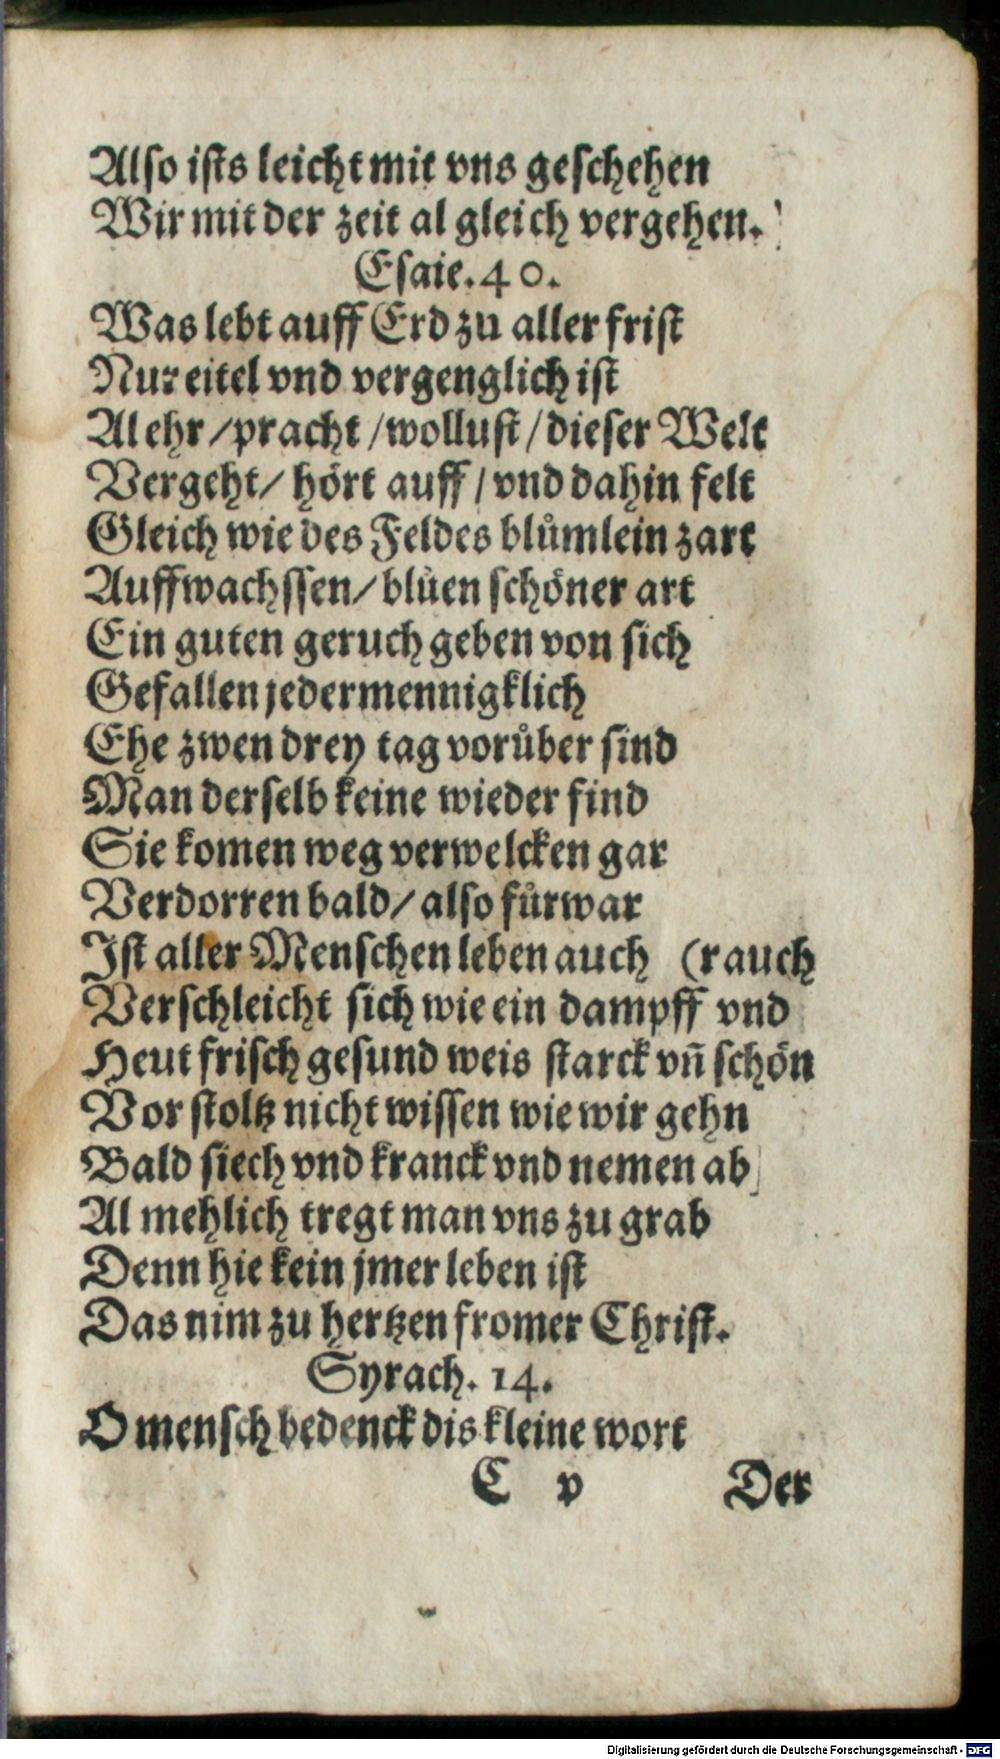 Also ists leicht mit vns geschehen
Wir mit der zeit al gleich vergehen.
Esaie. 40.
Was lebt auff Erd zu aller frist
Nur eitel vnd vergenglich ist
Al ehr / pracht / wollust / dieser Welt
Vergeht / hört auff / vnd dahin felt
Gleich wie des Feldes blůmlein zart
Auffwachssen / blůen schöner art
Ein guten geruch geben von sich
Gefallen jedermennigklich
Ehe zwen drey tag vorůber sind
Man derselb keine wieder find
Sie komen weg verwelcken gar
Verdorren bald / also fůrwar
Ist aller Menschen leben auch (rauch
Verschleicht sich wie ein dampff vnd
Heut frisch gesund weis starck vñ schön
Vor stoltz nicht wissen wie wir gehn
Bald siech vnd kranck vnd nemen ab
Al mehlich tregt man vns zu grab
Denn hie kein jmer leben ist
Das nim zu hertzen fromer Christ.
Syrach. 14.
O mensch bedenck dis kleine wort
C v Der
Digitalisierung gefördert durch die Deutsche Forschungsgemeinschaft - DFG